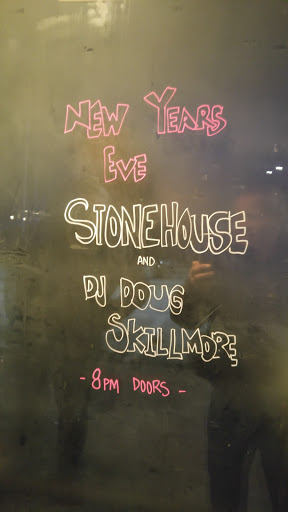 NEW YEARS
EVE
STONEHOUSE
AND
DJ DOUG
SKILLMORE
- 8PM DOORS -